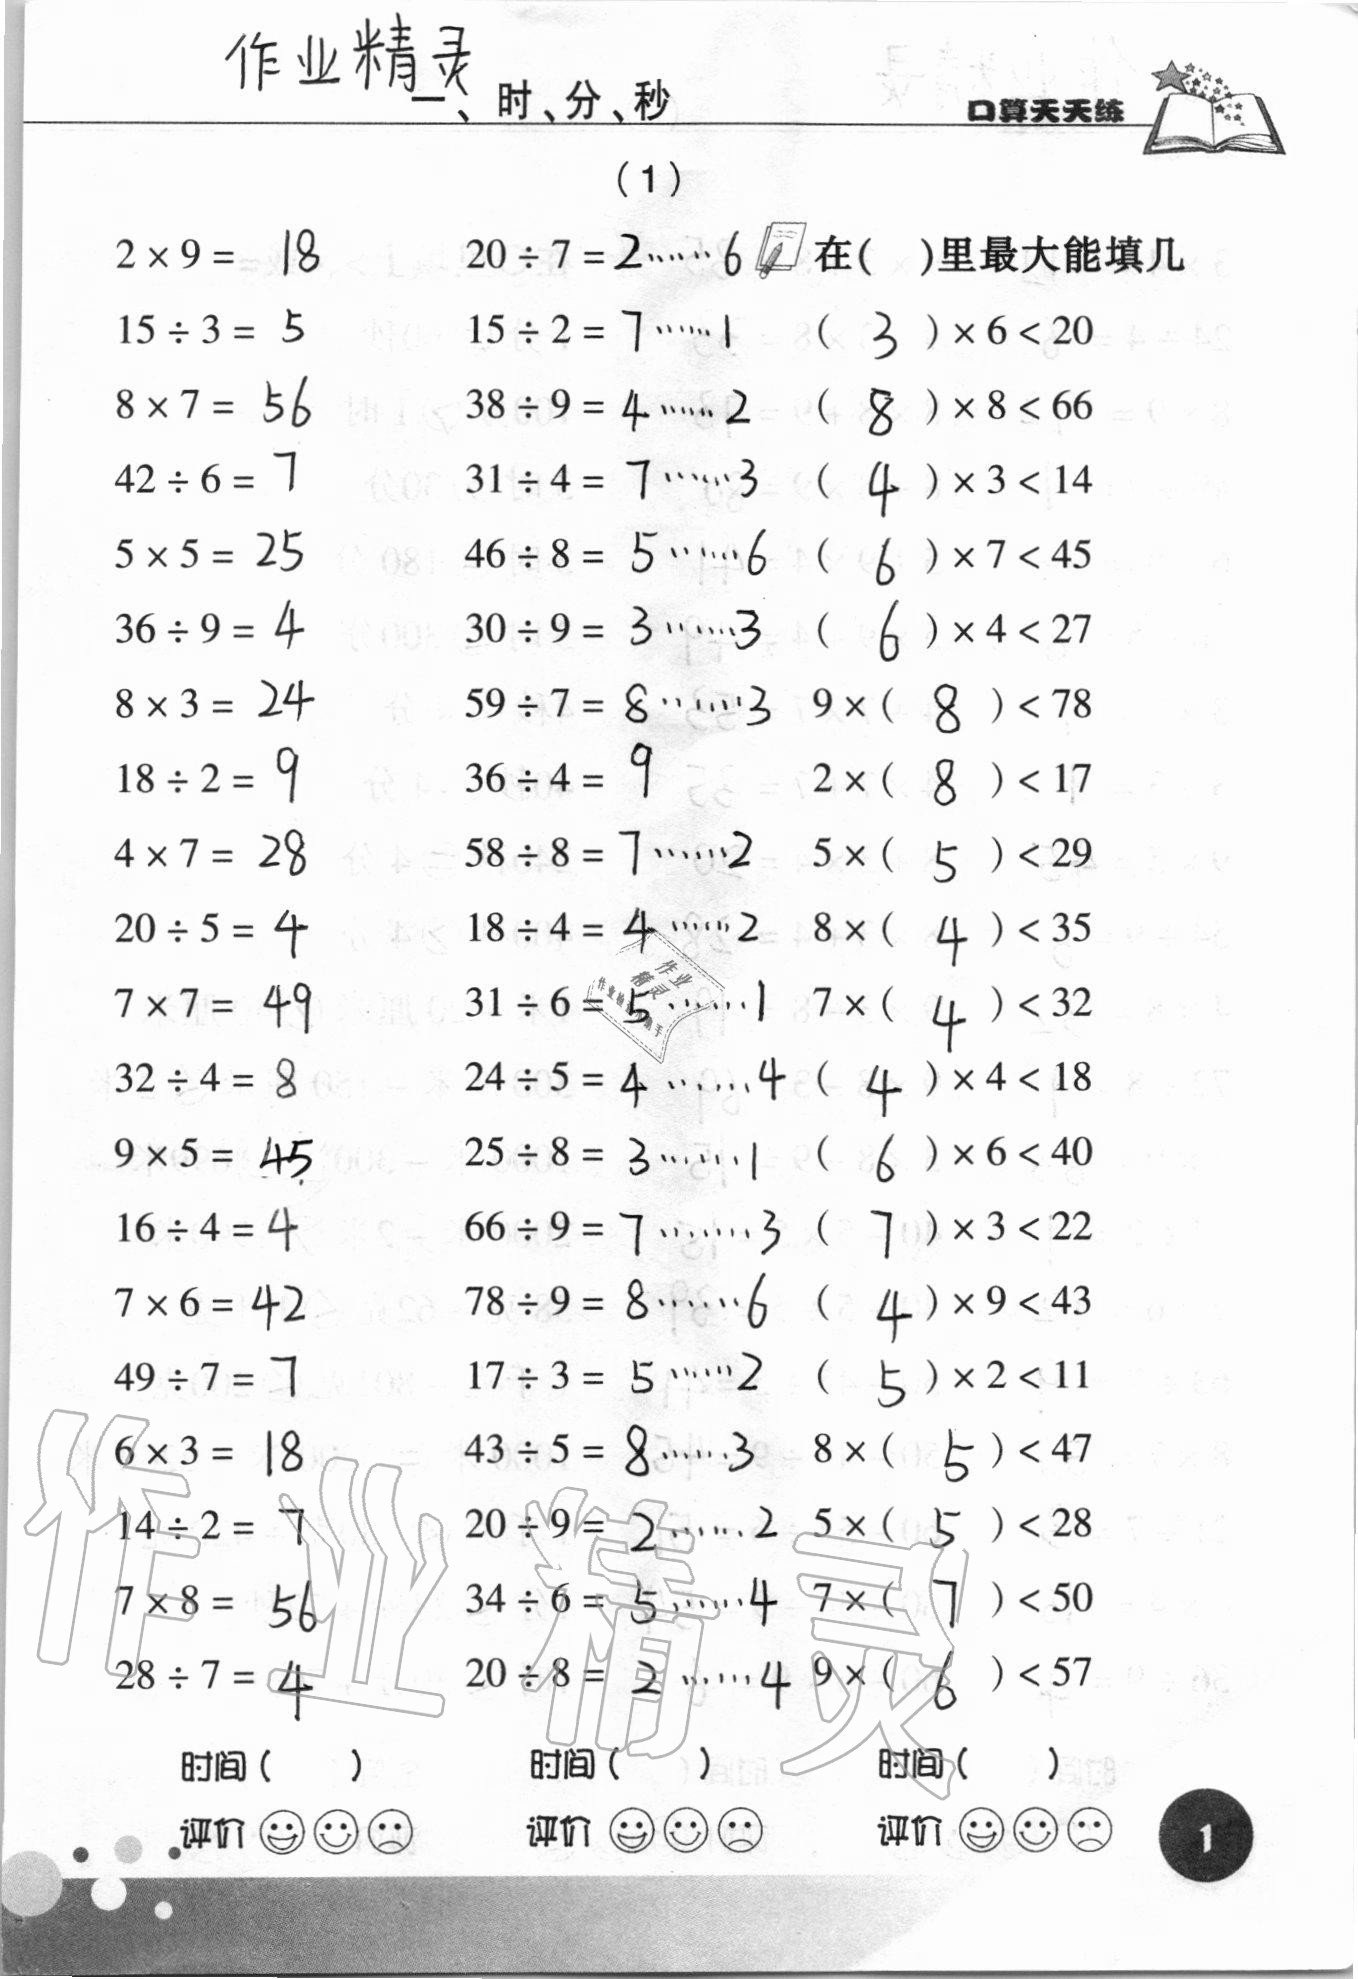 作业精灵
一、时、分、秒
口算天天练
（1）
2 × 9 = 18 20 ÷ 7 = 2……6 在( )里最大能填几
15 ÷ 3 = 5 15 ÷ 2 = 7……1 ( 3 ) × 6 < 20
8 × 7 = 56 38 ÷ 9 = 4……2 ( 8 ) × 8 < 66
42 ÷ 6 = 7 31 ÷ 4 = 7……3 ( 4 ) × 3 < 14
5 × 5 = 25 46 ÷ 8 = 5……6 ( 6 ) × 7 < 45
36 ÷ 9 = 4 30 ÷ 9 = 3……3 ( 6 ) × 4 < 27
8 × 3 = 24 59 ÷ 7 = 8……3 9 × ( 8 ) < 78
18 ÷ 2 = 9 36 ÷ 4 = 9 2 × ( 8 ) < 17
4 × 7 = 28 58 ÷ 8 = 7……2 5 × ( 5 ) < 29
20 ÷ 5 = 4 18 ÷ 4 = 4……2 8 × ( 4 ) < 35
7 × 7 = 49 31 ÷ 6 = 5……1 7 × ( 4 ) < 32
32 ÷ 4 = 8 24 ÷ 5 = 4……4 ( 4 ) × 4 < 18
9 × 5 = 45 25 ÷ 8 = 3……1 ( 6 ) × 6 < 40
16 ÷ 4 = 4 66 ÷ 9 = 7……3 ( 7 ) × 3 < 22
7 × 6 = 42 78 ÷ 9 = 8……6 ( 4 ) × 9 < 43
49 ÷ 7 = 7 17 ÷ 3 = 5……2 ( 5 ) × 2 < 11
6 × 3 = 18 43 ÷ 5 = 8……3 8 × ( 5 ) < 47
14 ÷ 2 = 7 20 ÷ 9 = 2……2 5 × ( 5 ) < 28
7 × 8 = 56 34 ÷ 6 = 5……4 7 × ( 7 ) < 50
28 ÷ 7 = 4 20 ÷ 8 = 2……4 9 × ( 6 ) < 57
作业精灵
时间( ) 时间( ) 时间( )
评价 评价 评价
1